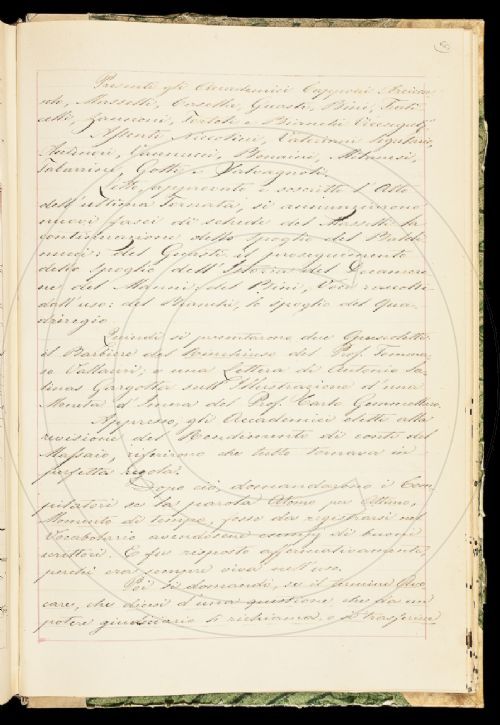 Presenti gli Accademici Capponi, Arcian-
geli, Massetti, Casella, Guasti, Bini, Frati-
celli, Zannoni, Tortoli e Bianchi Vicesegret.
Assenti Niccolini,
Vannucci, Bonaini, Milanesi,
Tabarrini, Gotti e Salvagnoli.
Letto, approvato e soscritto l'Atto
dell'ultima Tornata, si annunziarono
nuovi fasci di schede: del Massetti la
continuazione dello spoglio del
del Guasti il proseguimento
dello spoglio dell'Istoria del Decamero-
ne del Manni; del Bini, Voci raccolte
dall'uso: del Bianchi, lo spoglio del Qua-
driregio.
Quindi si presentarono due Opuscoletti:
il Barbiere del del Prof. Tomma-
so Vallauri; e una Lettera di Antonio Sa-
linas Gargotta sull'Illustrazione d'una
Moneta d'Imera del Prof. Carlo Gemmellaro.
Appresso, gli Accademici eletti alla
revisione del Rendimento di conti del
Massaio, riferirono che tutto tornava in
perfetta regola.
Dopo ciò, domandarono i Com-
pilatori se la parola Atomo per Attimo,
Momento di tempo, fosse da registrarsi nel
Vocabolario avendosene esempj di buoni
scrittori. E fu risposto affermativamente,
perchè era sempre viva nell'uso.
Poi si domandò, se il termine Avo-
care, che dicesi d'una questione che da un
potere giudiciario si richiama o si trasferisce